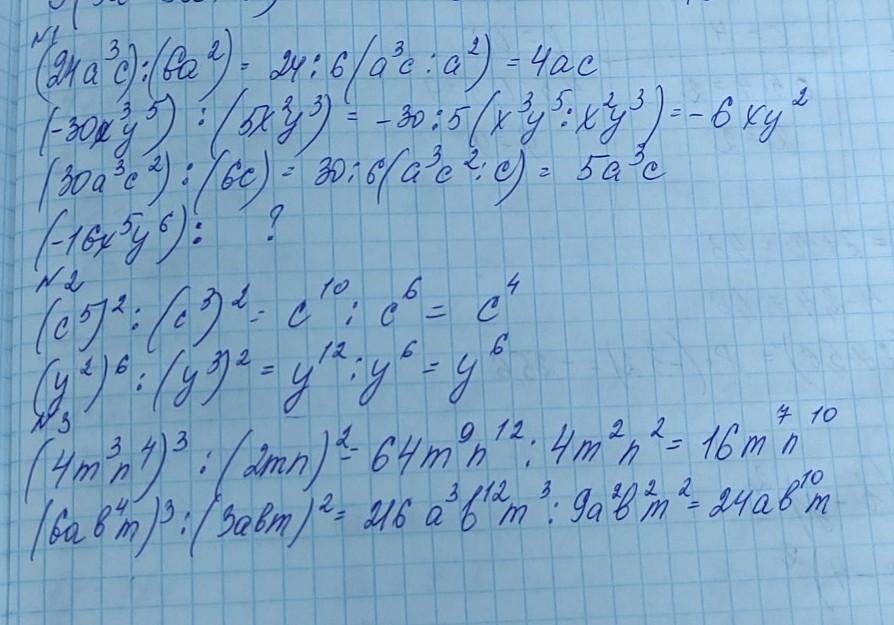 N1
(24a³c):(6a²) = 24:6(a³c:a²) = 4ac
(-30x³y⁵) : (5x²y³) = -30:5(x³y⁵:x²y³) = -6xy²
(30a³c²) : (6c) = 30:6(a³c²:c) = 5a³c
(-16x⁵y⁶): ?
N2
(c⁵)²:(c³)² = c¹⁰ : c⁶ = c⁴
(y²)⁶ : (y³)² = y¹² : y⁶ = y⁶
N3
(4m³n⁴)³ : (2mn)² = 64m⁹n¹² : 4m²n² = 16m⁷n¹⁰
(6ab⁴m)³ : (3abm)² = 216a³b¹²m³ : 9a²b²m² = 24ab¹⁰m